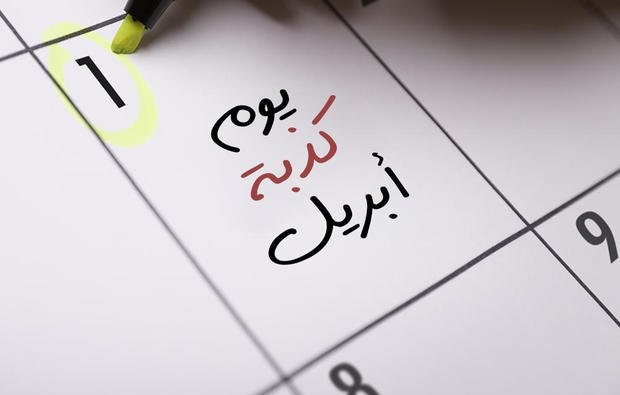 1
يوم
كذبة
أبريل
9
8